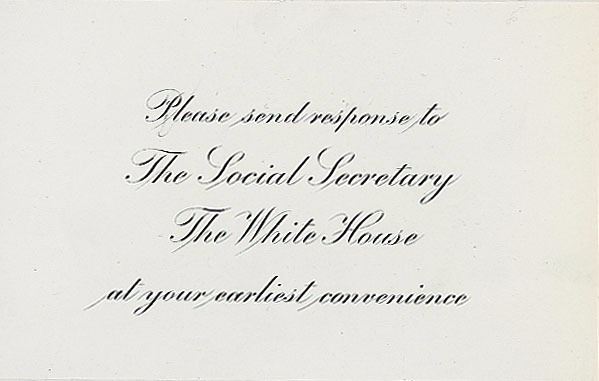 Please send response to
The Social Secretary
The White House
at your earliest convenience